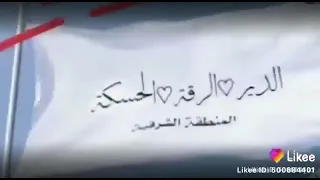 الدير♡الرقة♡الحسكة
المنطقة الشرقية
Likee
Likee ID: 500684401